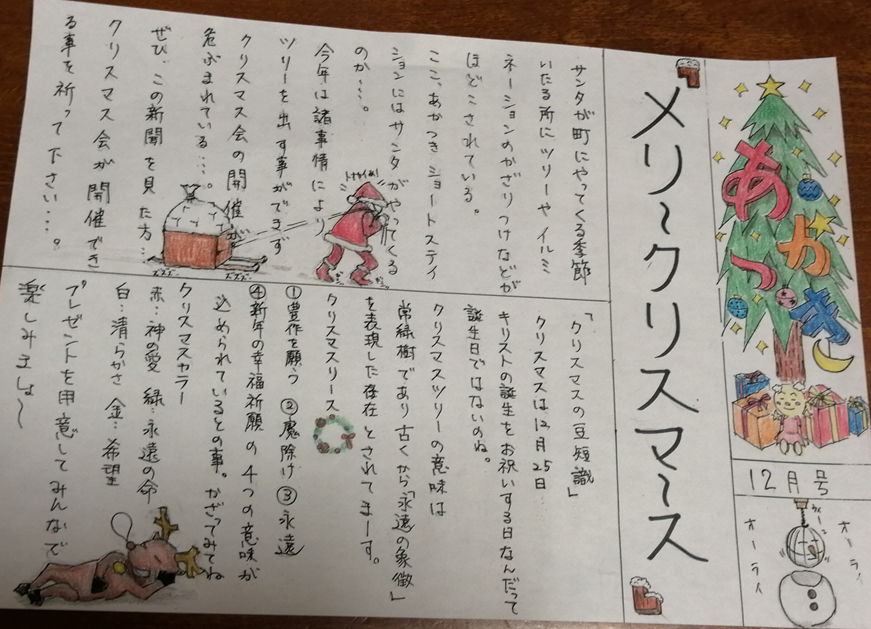 あかつき
12月号
オーライ
オーライ
メリ〜クリスマ〜ス
サンタが町にやってくる季節
いたる所にツリーやイルミ
ネーションのかざりつけなどが
ほどこされている。
ここ、あかつきショートステイ
ションにはサンタがやってくる
のか…。
今年は諸事情により
ツリーを出す事ができず
クリスマス会の開催が
危ぶまれている…。
ぜひ、この新聞を見た方…
クリスマス会が開催でき
る事を祈って下さい…。
「クリスマスの豆短識」
クリスマスは12月25日
キリストの誕生をお祝いする日なんだって
誕生日ではないのね。
クリスマスツリーの意味は
常緑樹であり古くから「永遠の象徴」
を表現した存在とされてまーす。
クリスマスリース
①豊作を願う ②魔除け ③永遠
④新年の幸福祈願 の4つの意味が
込められているとの事。かざってみてね
クリスマスカラー
赤…神の愛 緑…永遠の命
白…清らかさ 金…希望
プレゼントを用意してみんなで
楽しみましょ〜